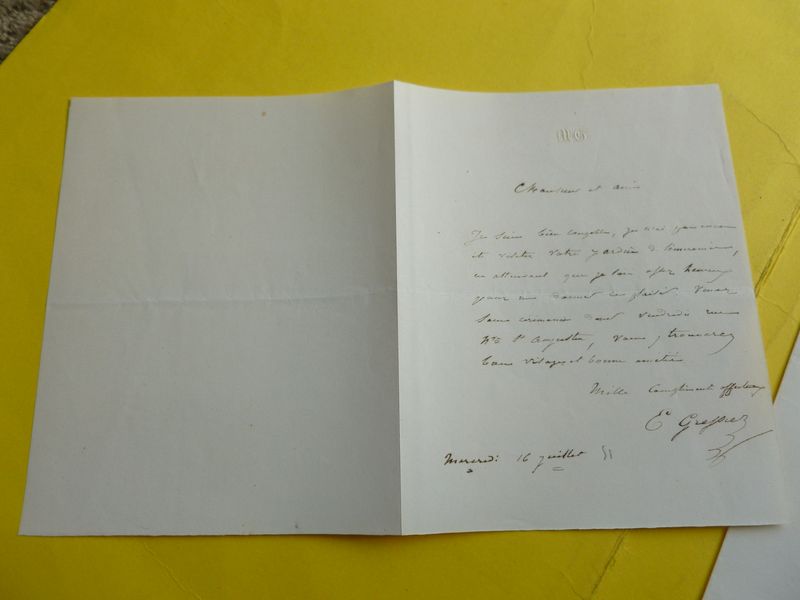 MG
Monsieur et ami
Je suis bien coupable, je n'ai pas encore
été visiter votre jardin d'
en attendant que je sois assez heureux
pour me donner ce plaisir. Venez
sans cérémonie vendredi rue
Nve St Augustin, vous y trouverez
bons visages et bonne amitié
Mille Compliments affectueux
Mercredi 16 juillet 51